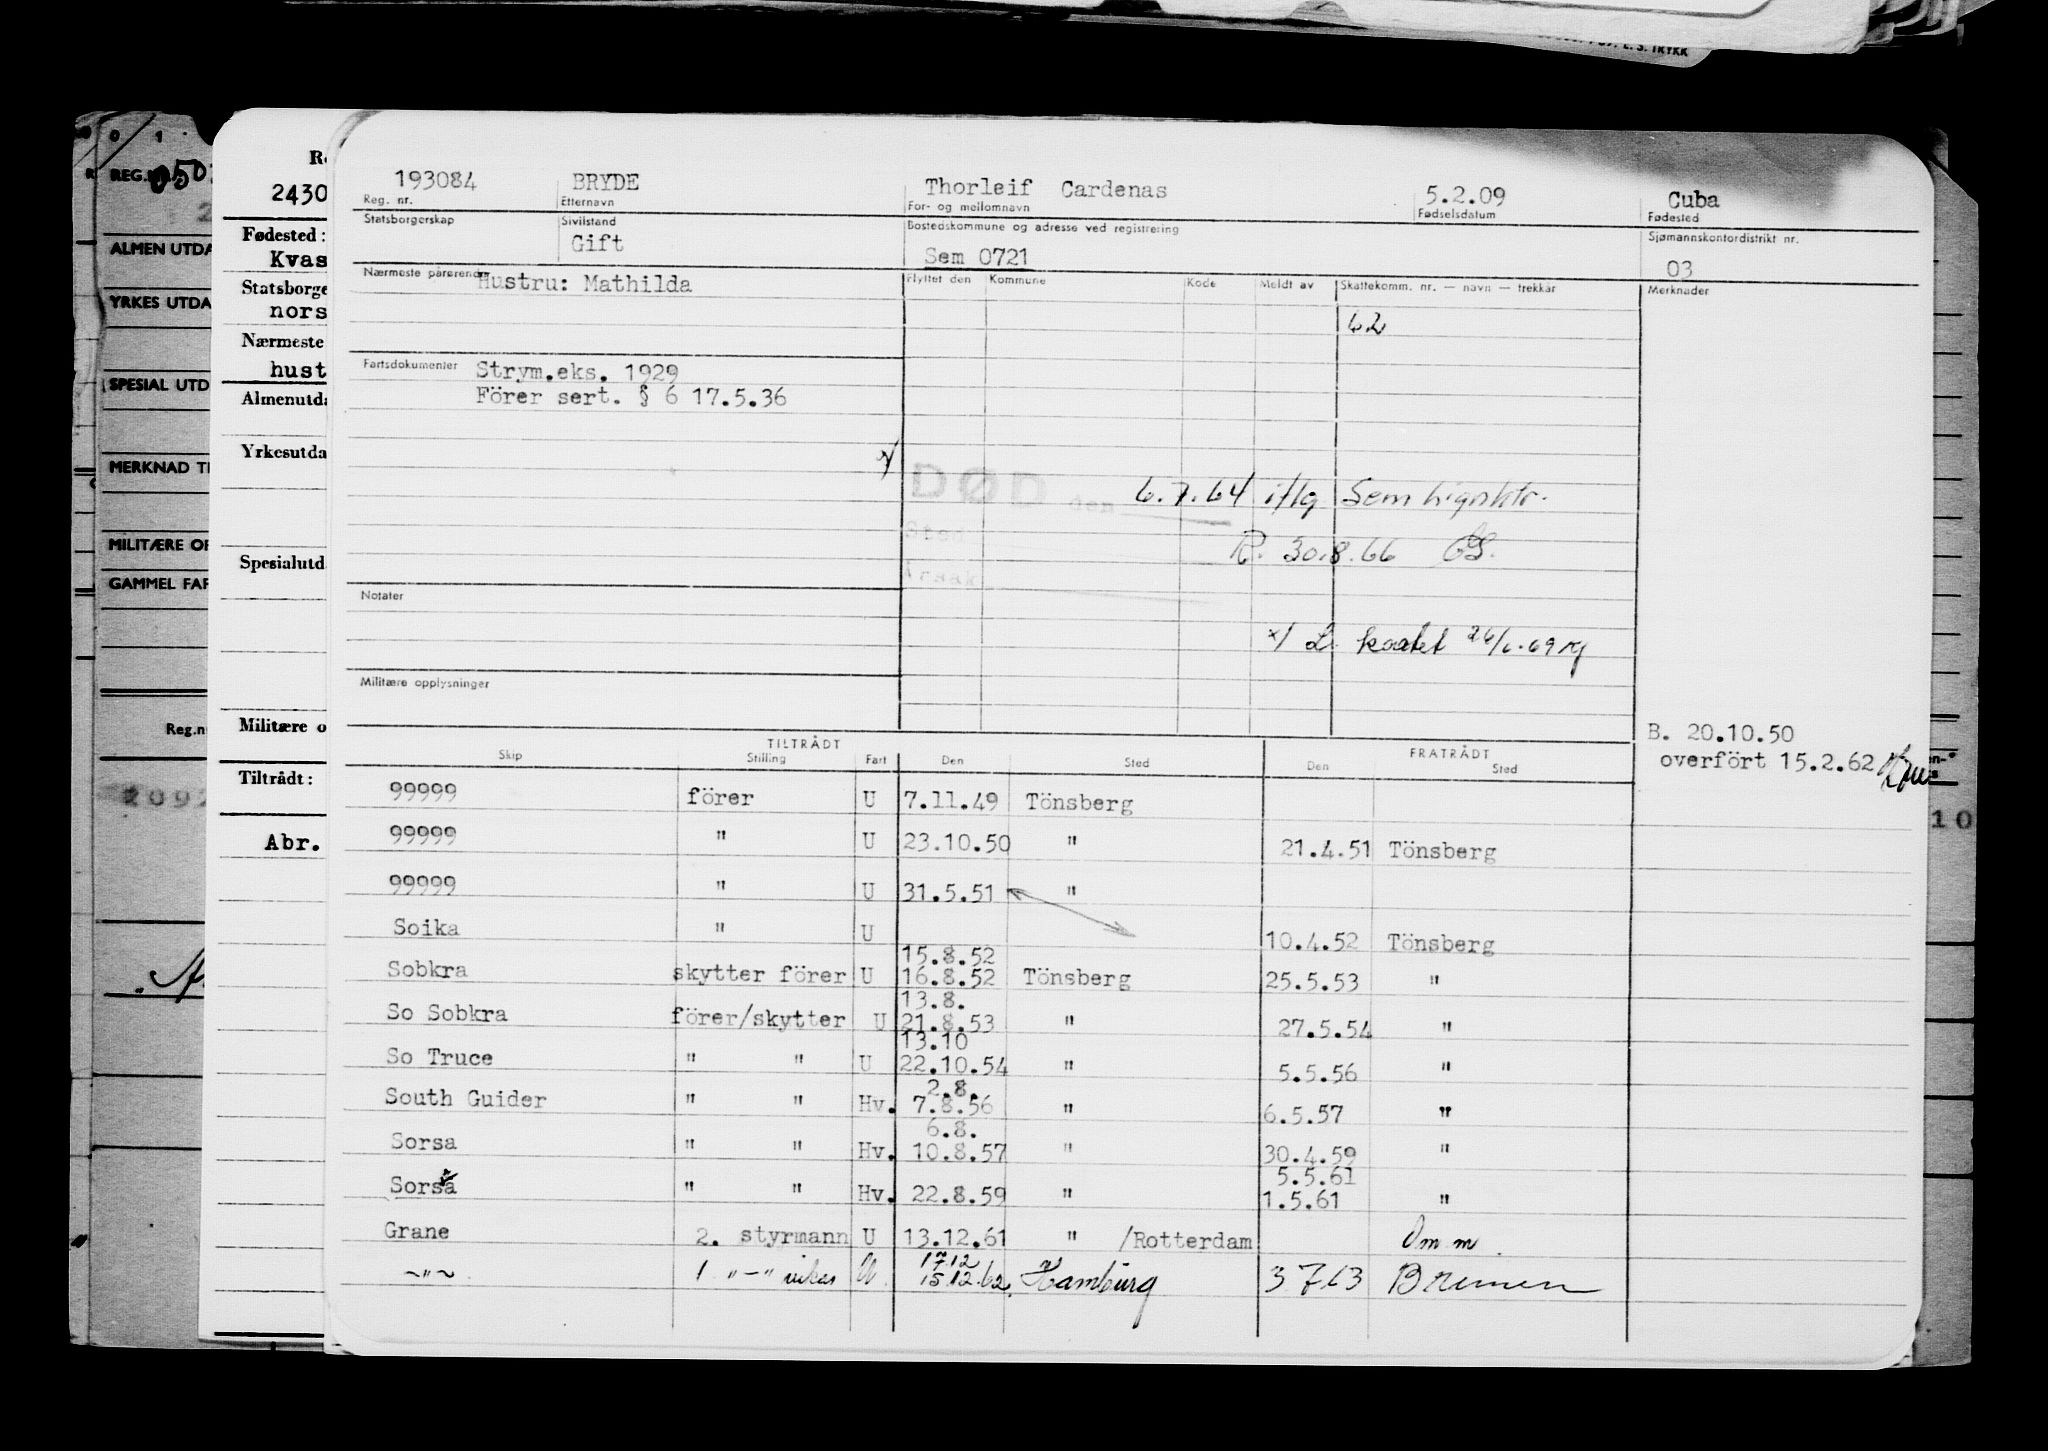 193084 BRYDE Thorleif Cardenas 5.2.09 Cuba
Reg. nr. Etternavn For- og mellomnavn Fødselsdatum Fødested
Statsborgerskap Sivilstand Bostedskommune og adresse ved registrering Sjømannskontordistrikt nr.
Gift Sem 0721 03
Nærmeste pårørende Hustru: Mathilda Flyttet den Kommune Kode Meldt av Skattekomm. nr. — navn — trekkår Merknader
62
Fartsdokumenter Strym.eks. 1929
Förer sert. § 6 17.5.36
DØD den 6.7.64 i/flg Sem
Sted R. 30.8.66
Årsak
Notater
x/
Militære opplysninger
B. 20.10.50
overfört 15.2.62
TILTRÅDT FRATRÅDT
Skip Stilling Fart Den Sted Den Sted
99999 förer U 7.11.49 Tönsberg
99999 " U 23.10.50 " 21.4.51 Tönsberg
99999 " U 31.5.51 "
Soika " U 10.4.52 Tönsberg
15.8.52
Sobkra skytter förer U 16.8.52 Tönsberg 25.5.53 "
13.8.
So Sobkra förer/skytter U 21.8.53 " 27.5.54 "
13.10
So Truce " " U 22.10.54 " 5.5.56 "
2.8.
South Guider " " Hv. 7.8.56 " 6.5.57 "
6.8.
Sorsa " " Hv. 10.8.57 " 30.4.59 "
5.5.61
Sorsa " " Hv. 22.8.59 " 1.5.61 "
Grane 2. styrmann U 13.12.61 " /Rotterdam Om m.
17.12
~"~ 1 "-" vikar U 15.12.62. Hamburg 3 7 63 Bremen
2430
Fødested:
Kvas
Statsborge
nors
Nærmeste
hust
Almenutda
Yrkesutda
Spesialutd
Militære o
Tiltrådt:
Abr.
0 1
REG.
ALMEN UTDA
YRKES UTDA
SPESIAL UTD
MERKNAD TI
MILITÆRE OP
GAMMEL FAR
Reg.n
2092
10